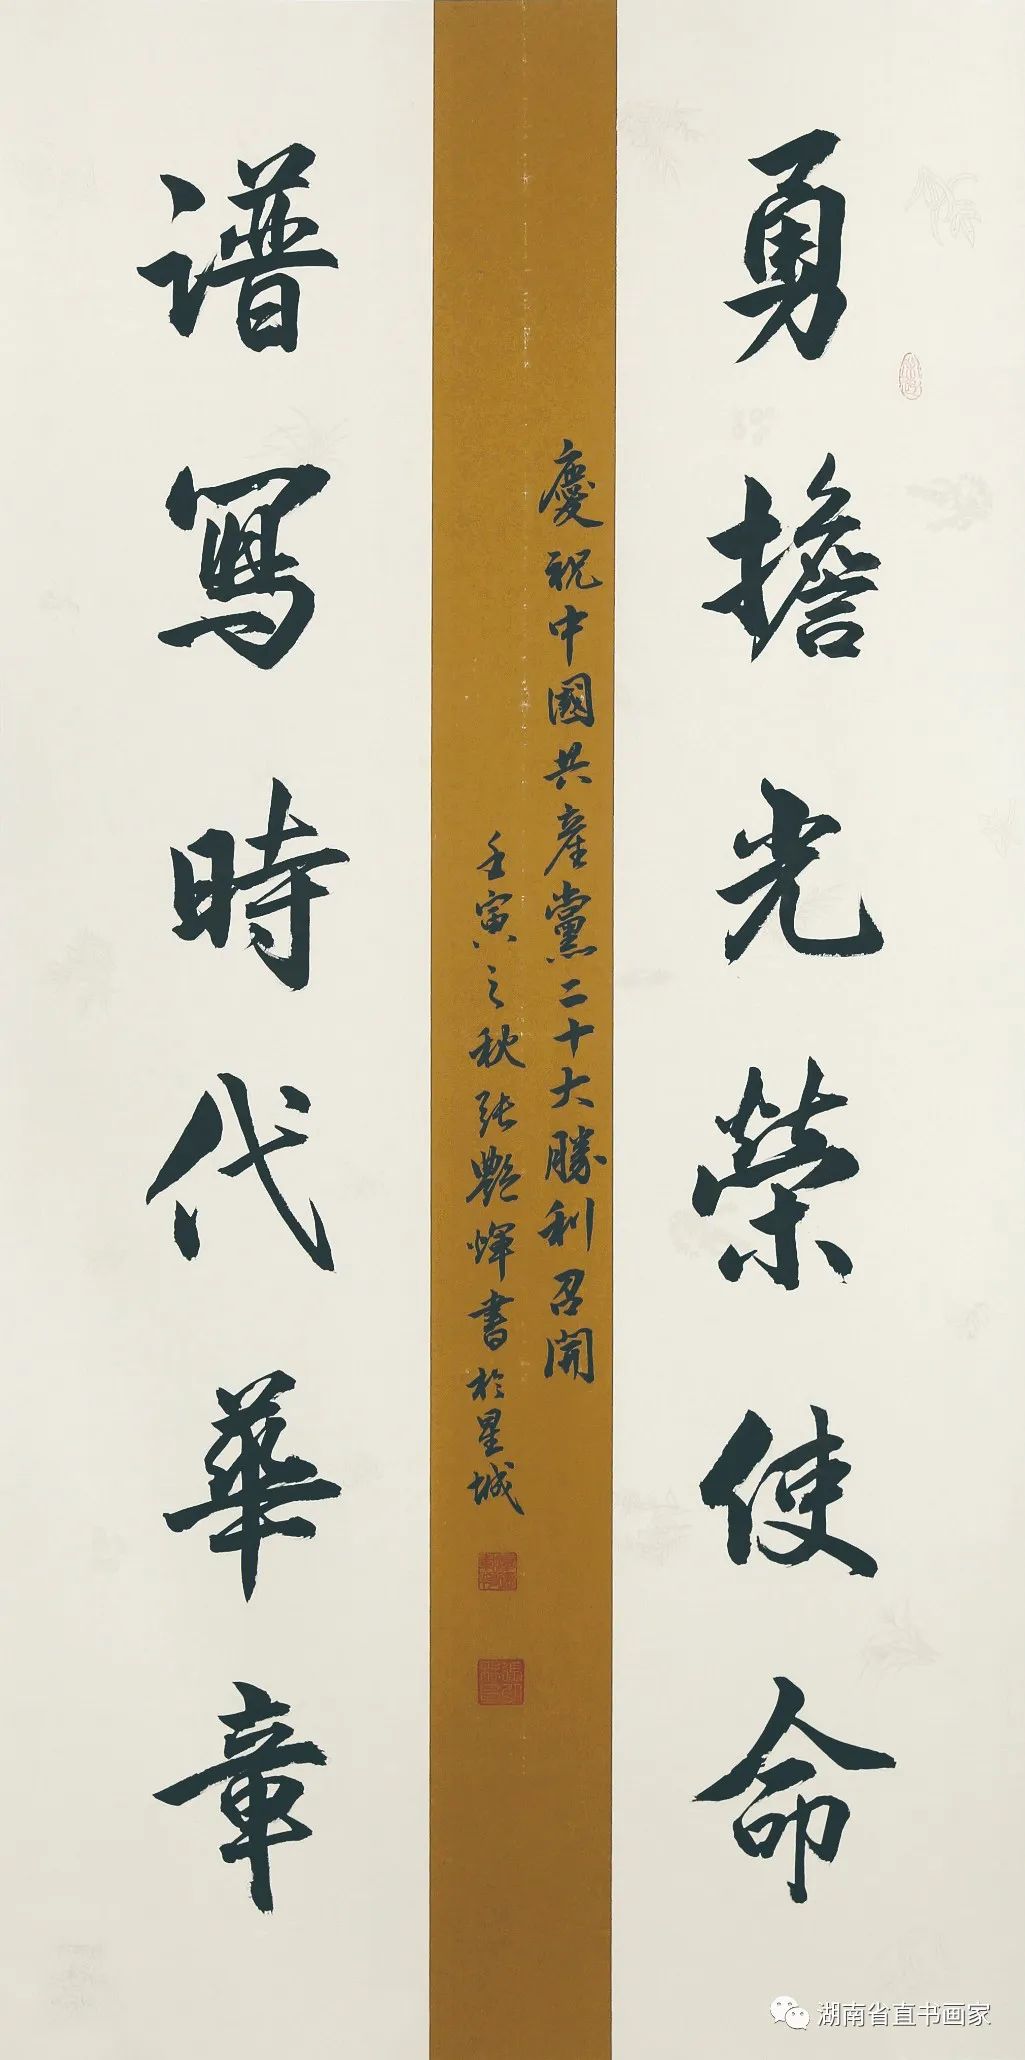 勇擔光榮使命
譜寫時代華章
慶祝中國共產黨二十大勝利召開
壬寅之秋張艷輝書於星城
湖南省直书画家